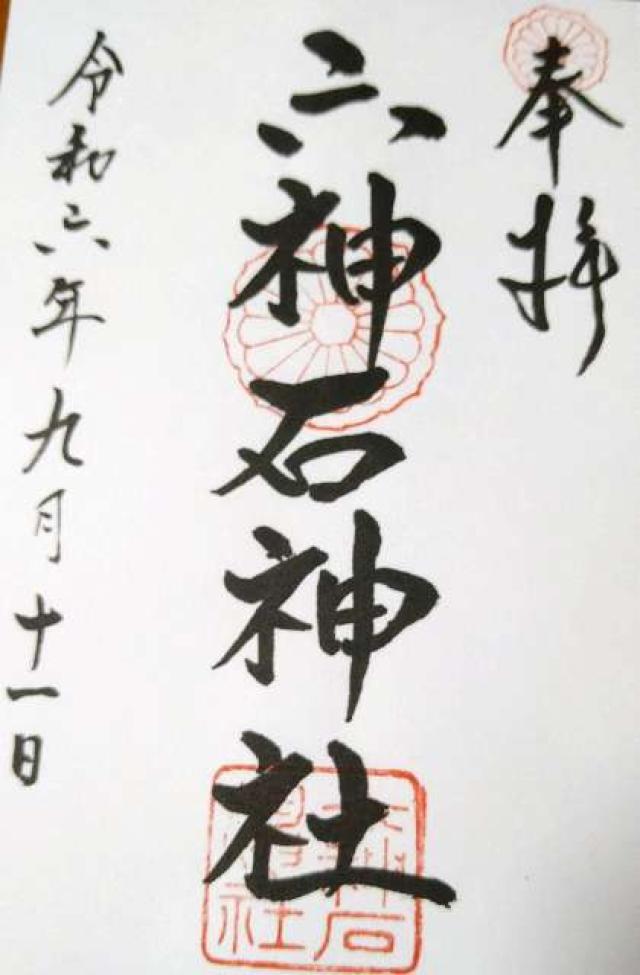 奉拝
六神石神社
令和六年九月十一日
六神石
神社